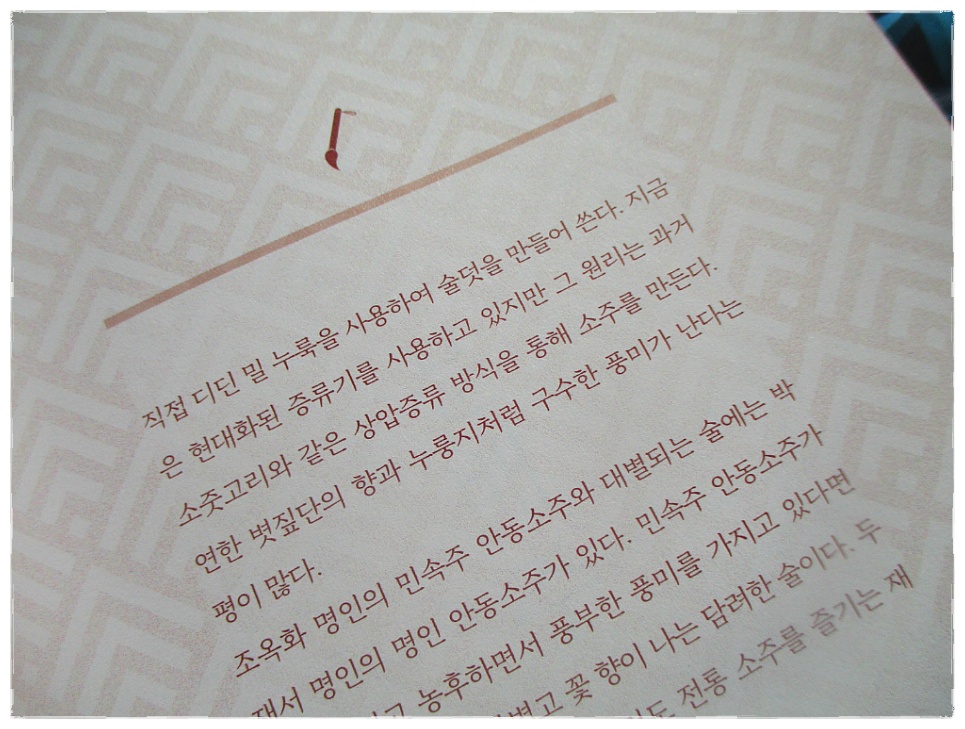 직접 디딘 밀 누룩을 사용하여 술덧을 만들어 쓴다. 지금
은 현대화된 증류기를 사용하고 있지만 그 원리는 과거
소줏고리와 같은 상압증류 방식을 통해 소주를 만든다.
연한 볏짚단의 향과 누룽지처럼 구수한 풍미가 난다는
평이 많다.
조옥화 명인의 민속주 안동소주와 대별되는 술에는 박
재서 명인의 명인 안동소주가 있다. 민속주 안동소주가
농후하면서 풍부한 풍미를 가지고 있다면
꽃 향이 나는 담려한 술이다. 두
전통 소주를 즐기는 재